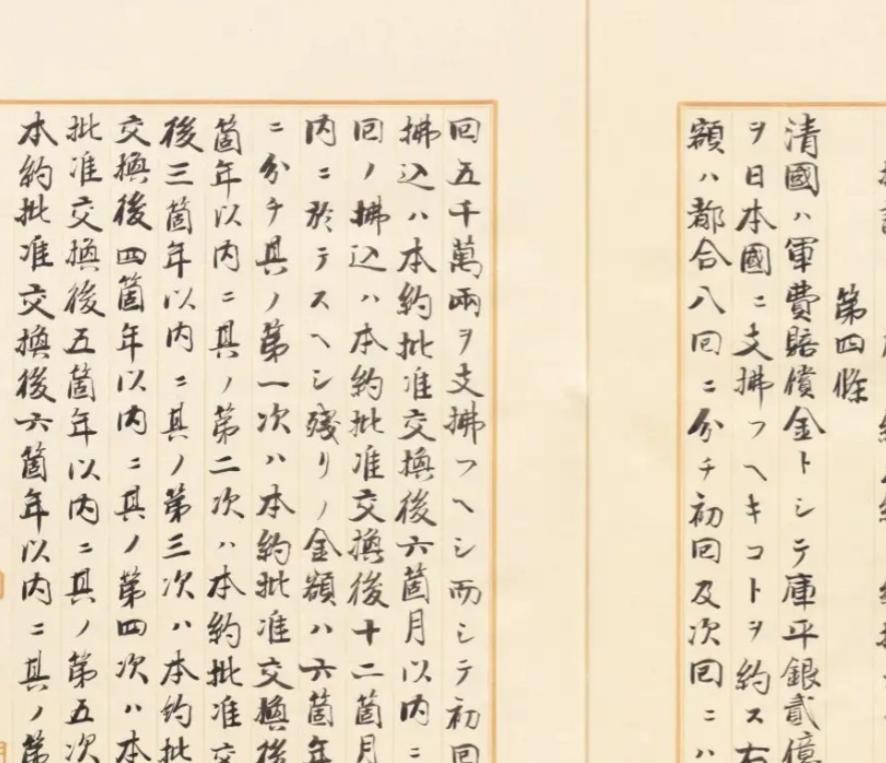 第四條
清國ハ軍費賠償金トシテ庫平銀貳億
ヲ日本國ニ支拂フヘキコトヲ約ス右
額ハ都合八回ニ分チ初回及次回ニハ
回五千萬兩ヲ支拂フヘシ而シテ初回
拂込ハ本約批准交換後六箇月以内ニ
回ノ拂込ハ本約批准交換後十二箇月
内ニ於テスヘシ残リノ金額ハ六箇年
ニ分チ其ノ第一次ハ本約批准交換後
箇年以内ニ其ノ第二次ハ本約批准交
後三箇年以内ニ其ノ第三次ハ本約批
交換後四箇年以内ニ其ノ第四次ハ本
批准交換後五箇年以内ニ其ノ第五次
本約批准交換後六箇年以内ニ其ノ第